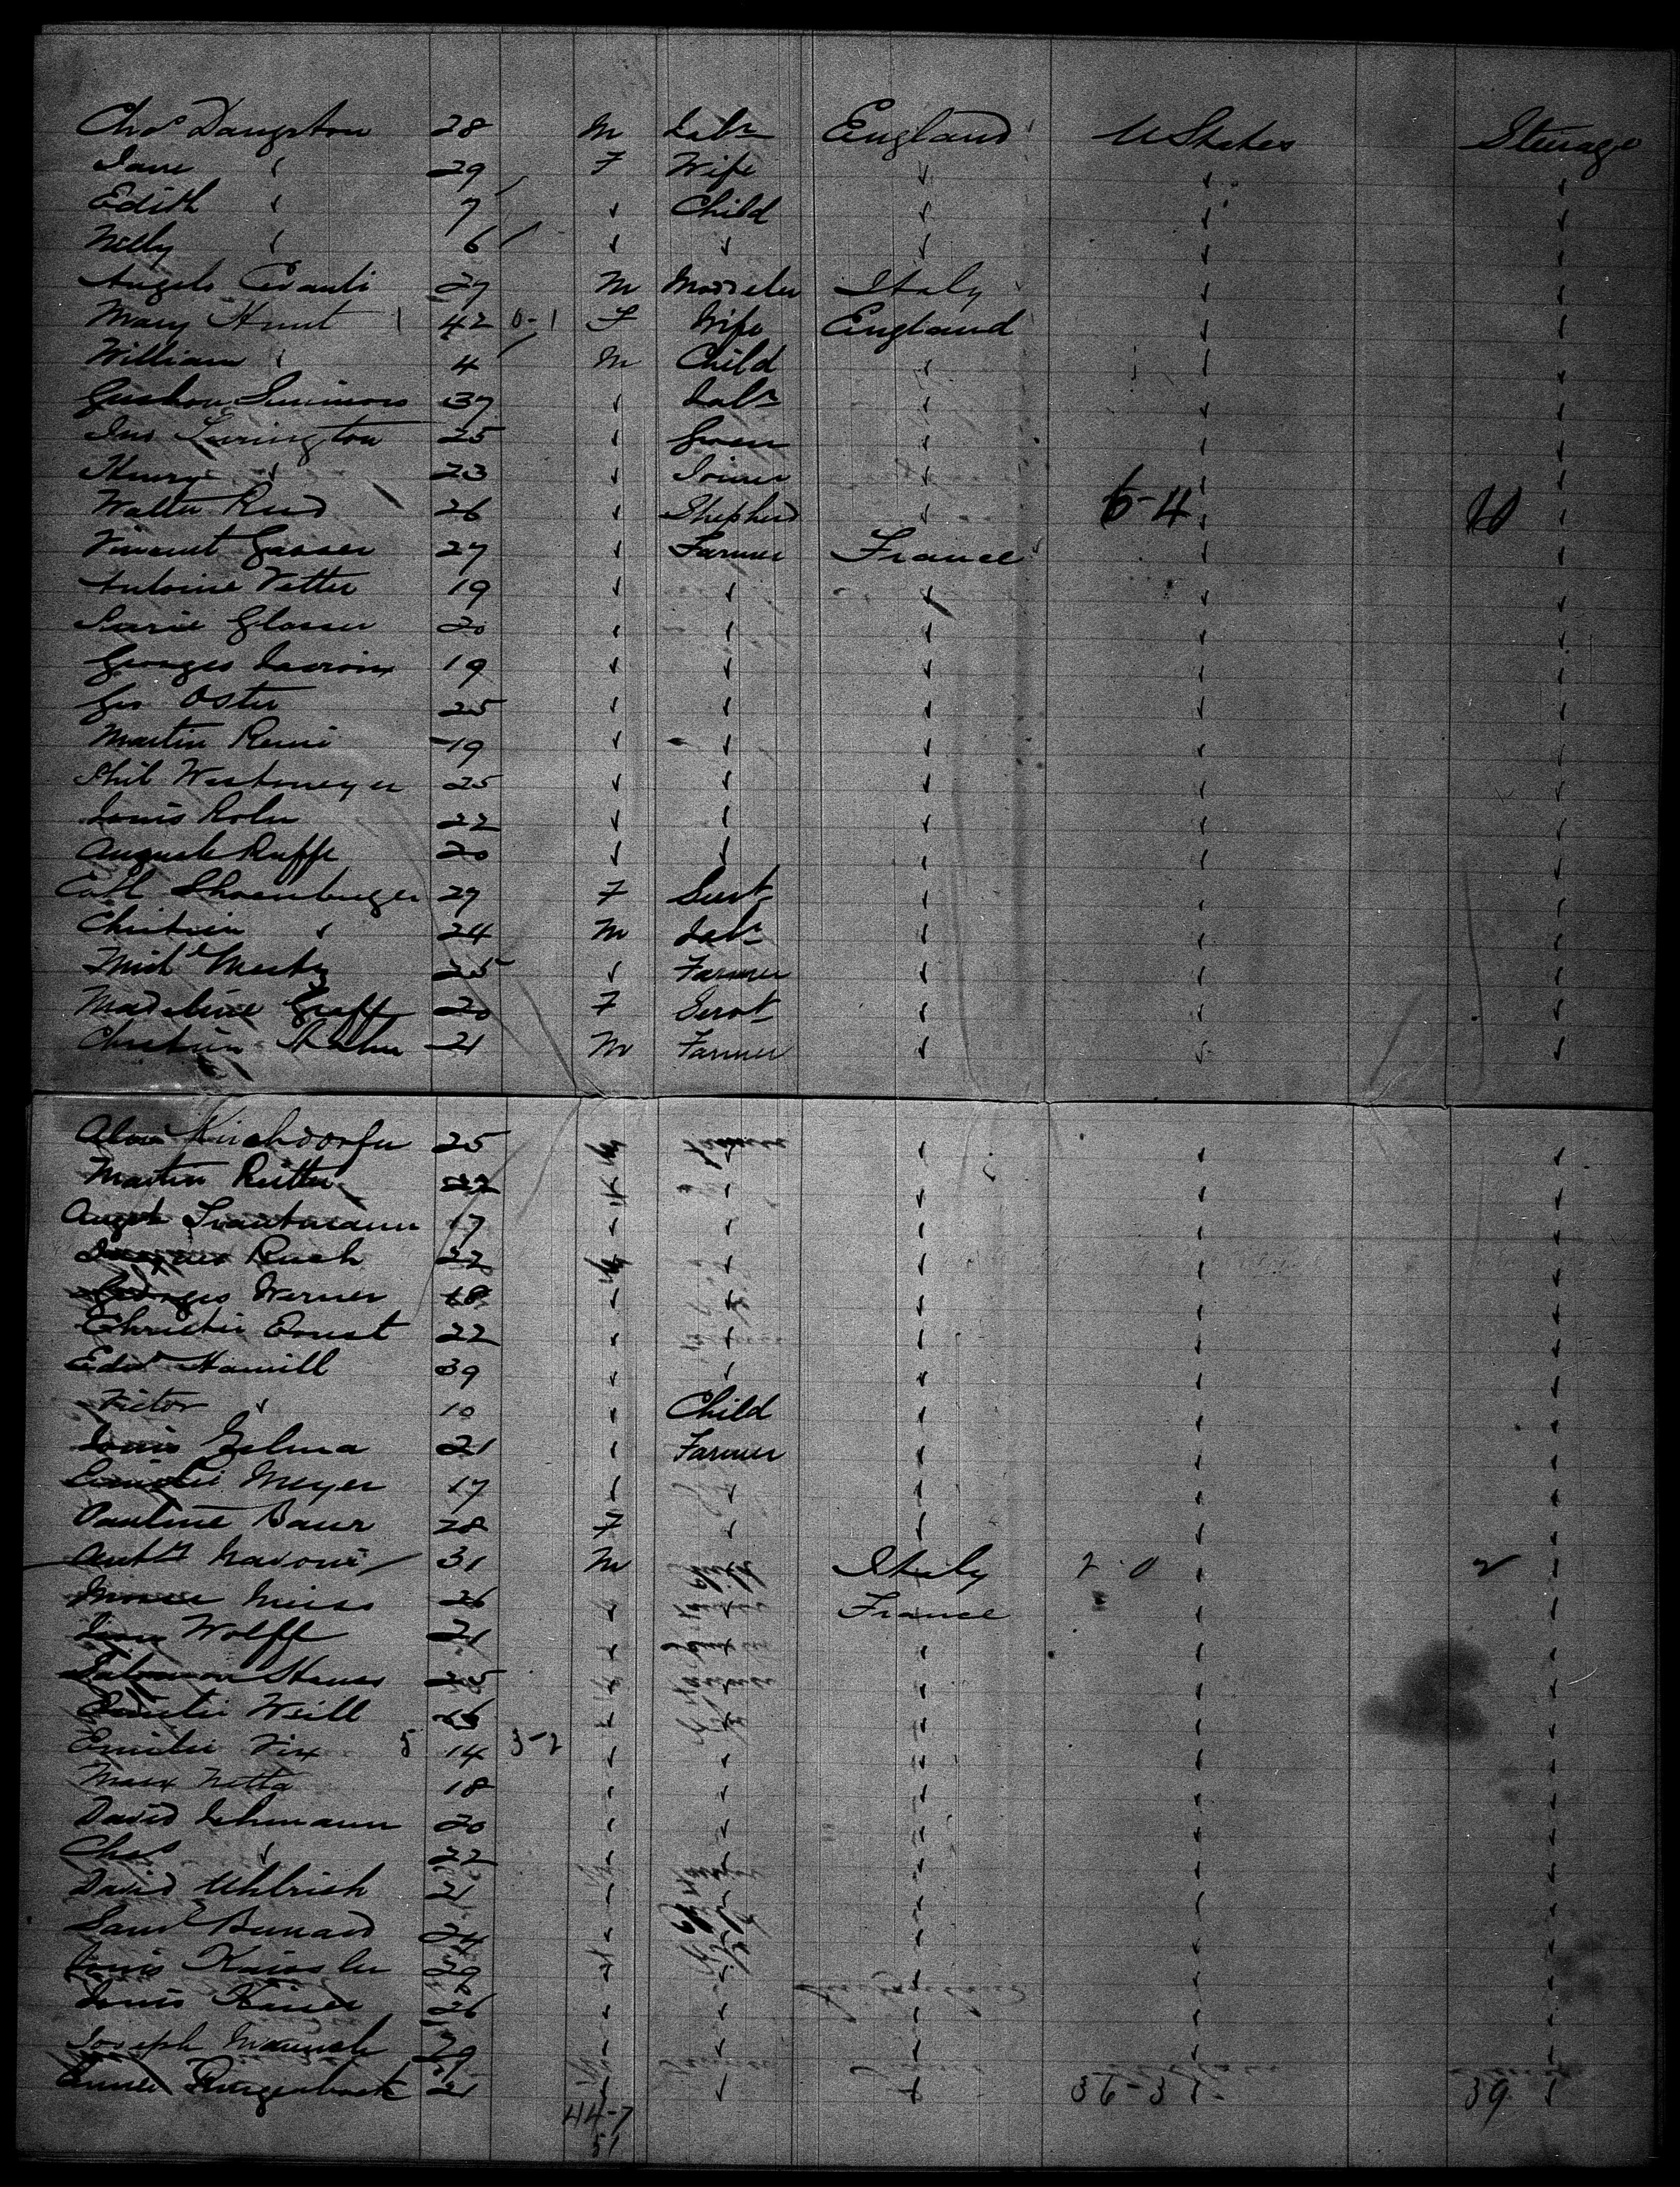 Chas Langston 28 M Labr England U States Steerage
Jane " 29 F Wife " " "
Edith " 7 " Child " " "
Nelly " 6 " " " " "
Angelo 27 M Italy " "
Mary Hunt 1 42 0-1 F Wife England " "
William " 4 M Child " " "
Simmons 37 " Labr " " "
Jno 25 " " " "
Henry " 23 " Joiner " " "
Walter Reed 26 " Shepherd " 6-4 " 10 "
Vincent Gasser 27 " Farmer France " "
Antoine Vetter 19 " " " " "
Glasser 20 " " " " "
Georges Lacroix 19 " " " " "
Geo Oster 25 " " " " "
Martin Remi 19 " " " " "
Phil Westemeyer 25 " " " " "
Louis 22 " " " " "
Auguste Ruffe 20 " " " " "
Cath Shoenburger 27 F Servt " " "
Christien " 24 M Labr " " "
Michl Mertz 25 " Farmer " " "
Madeleine Graff 20 F Servt " " "
Christien 21 M Farmer " " "
Kirchdorfer 25 M Farmer " " "
Martin Reitter 22 " " " " "
Augst Trautmann 17 " " " " "
Jacques Ruch 22 " " " " "
Georges Werner 18 " " " " "
Christie Ernst 22 " " " " "
Edwd Hamill 39 " " " " "
Victor " 10 " Child " " "
Louis 21 " Farmer " " "
Meyer 17 " " " " "
Pauline Baur 28 F " " " "
31 M Italy 2-0 " 2 "
26 " France " "
Wolff 21 " " " "
Salomon 25 " " " "
Weill 16 " " " "
Emilie Fix 5 14 3-2 " " " " "
Max Netta 18 " " " " "
David Lehmann 20 " " " " "
Chas " 22 " " " "
David Uhlrich 21 " " " "
Saml Bernard 24 " " " "
Louis 29 " " " "
Louis 26 " " " " "
Joseph 29 " " " " "
21 " " " 36-3 " 39 "
44-7
51